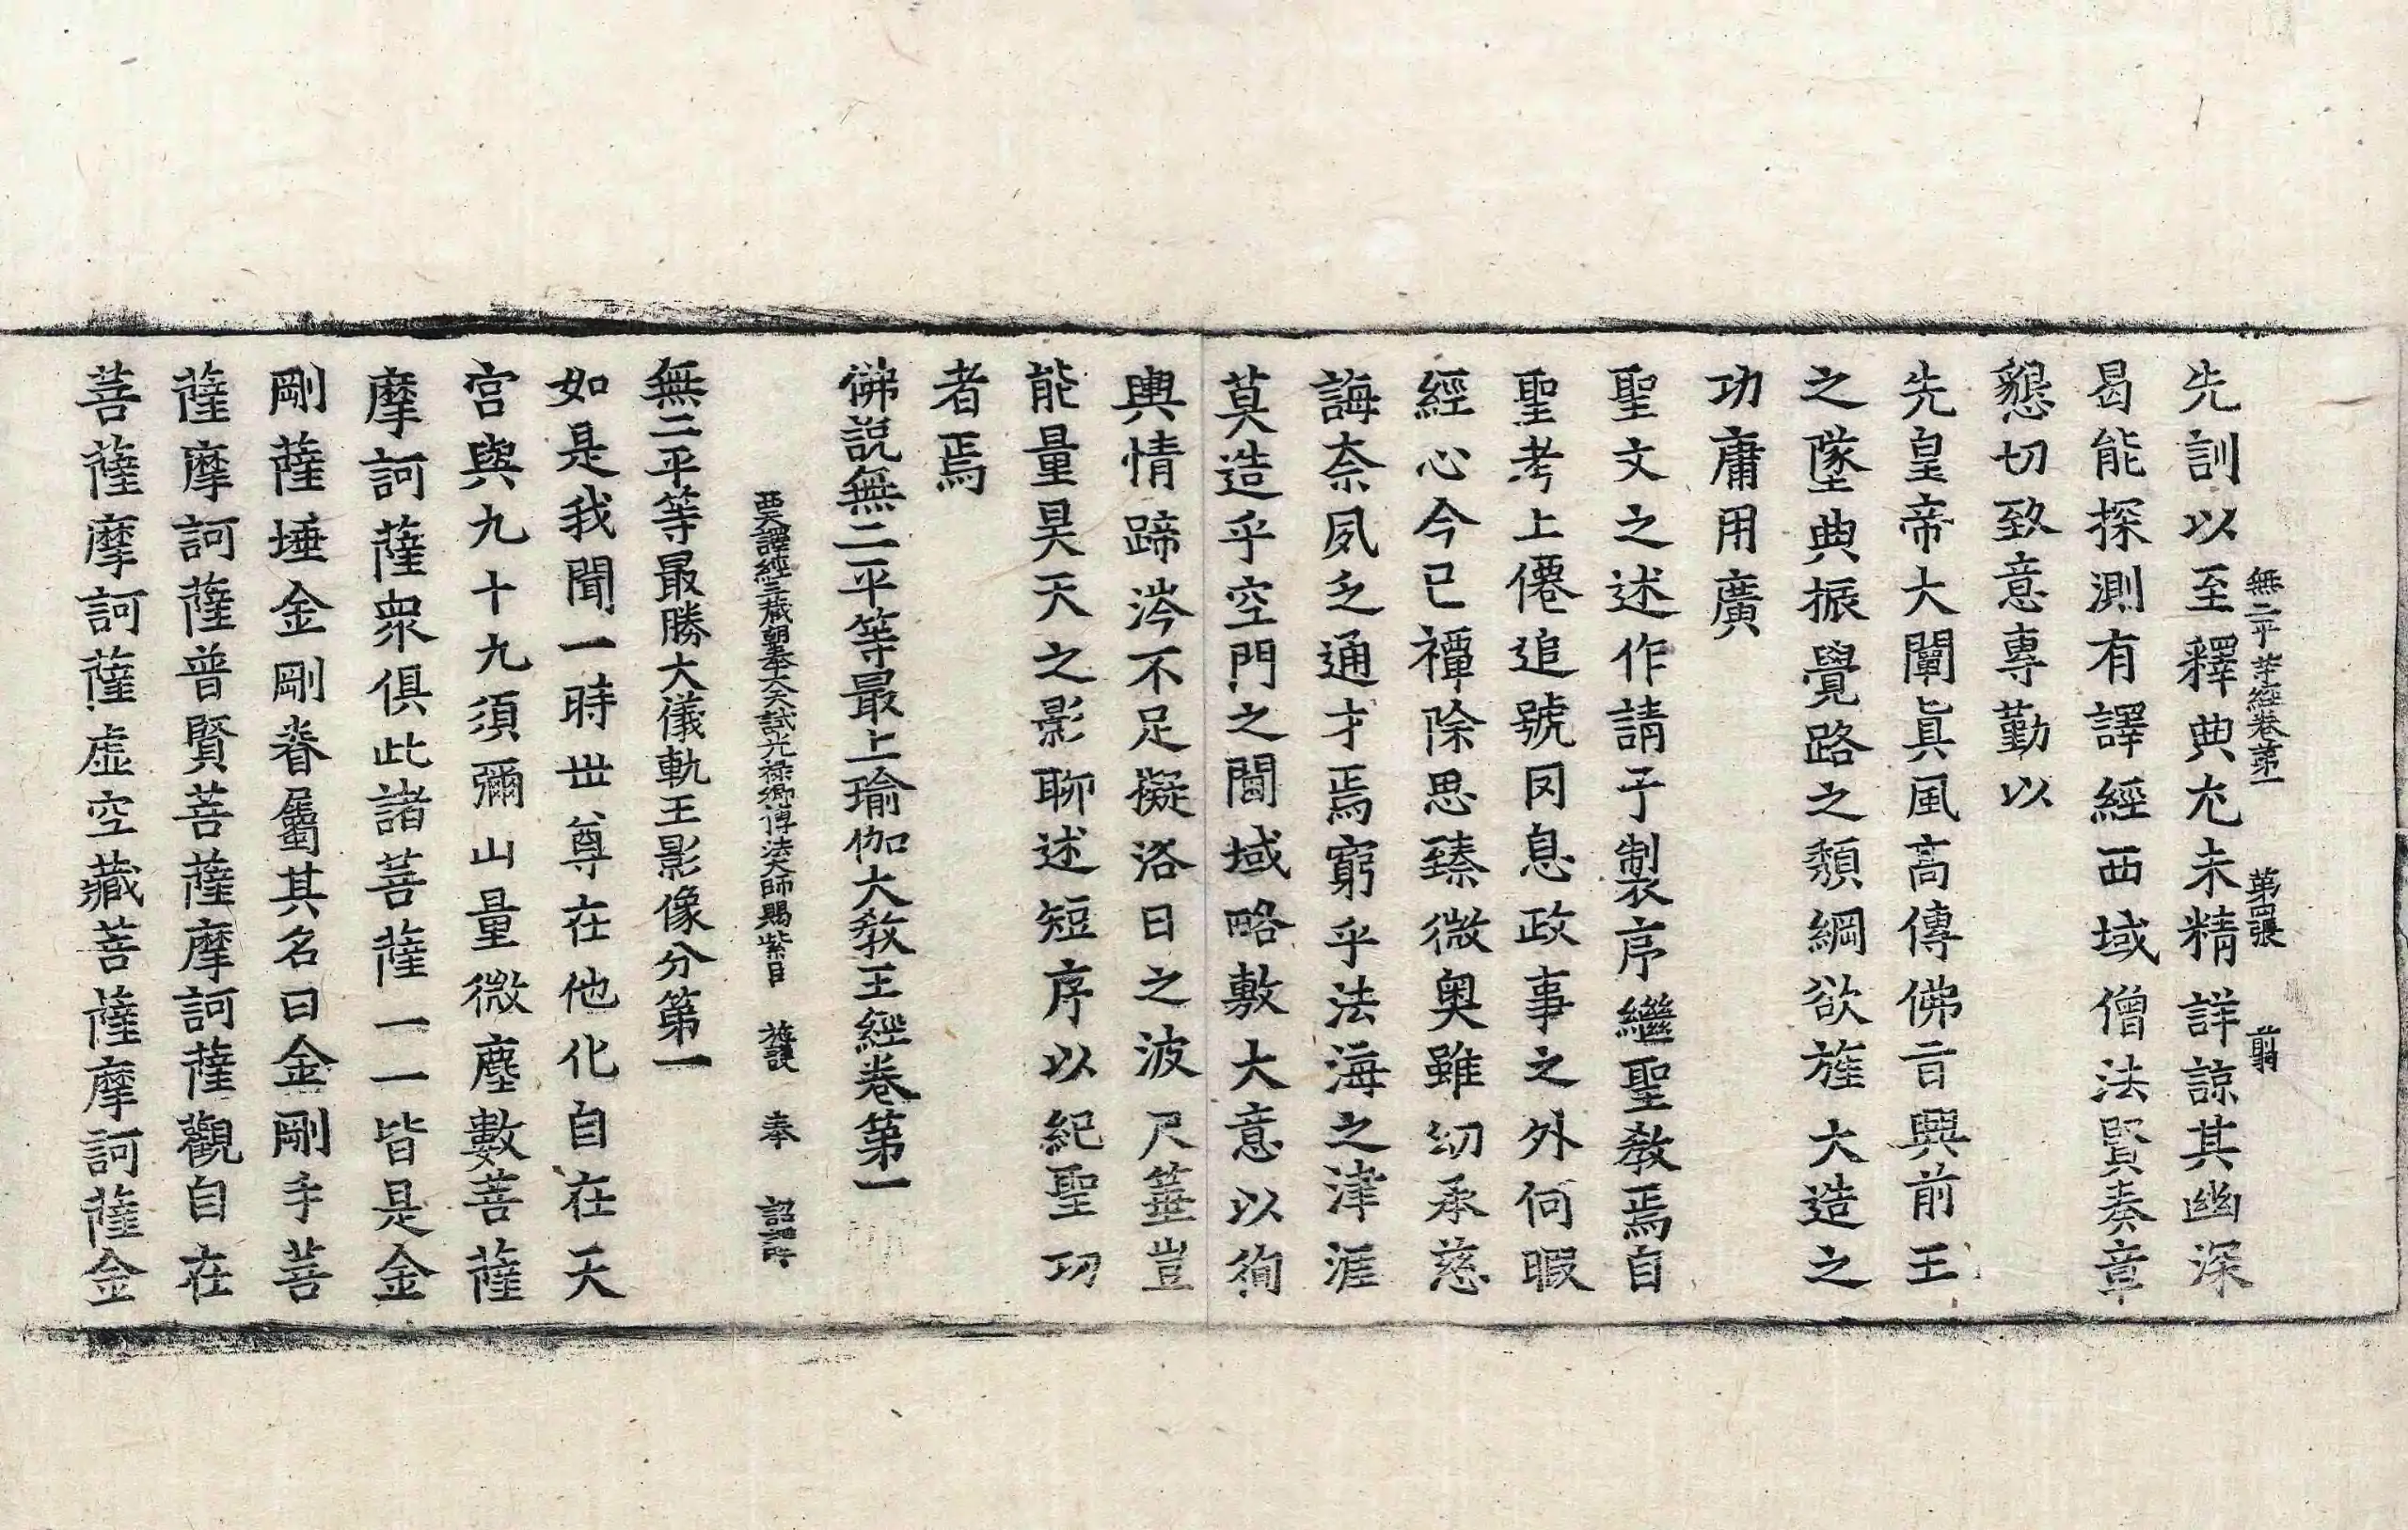 無二平等經卷第一 第四張 翦
先訓以至釋典尤未精詳諒其幽深
曷能探測有譯經西域僧法賢奏章
懇切致意專勤以
先皇帝大闡眞風高傳佛旨興前王
之墜典振覺路之頹綱欲旌大造之
功庸用廣
聖文之述作請予製序繼聖教焉自
聖考上僊追號罔息政事之外何暇
經心今已禫除思臻微奧雖幼承慈
誨奈夙乏通才焉窮乎法海之津涯
莫造乎空門之閫域略敷大意以徇
輿情蹄涔不足擬洛日之波尺箠豈
能量昊天之影聊述短序以紀聖功
者焉
佛說無二平等最上瑜伽大教王經卷第一
西天譯經三藏朝奉大夫試光祿卿傳法大師賜紫臣 施護 奉 詔譯
無二平等最勝大儀軌王影像分第一
如是我聞一時世尊在他化自在天
宮與九十九須彌山量微塵數菩薩
摩訶薩衆俱此諸菩薩一一皆是金
剛薩埵金剛眷屬其名曰金剛手菩
薩摩訶薩普賢菩薩摩訶薩觀自在
菩薩摩訶薩虛空藏菩薩摩訶薩金